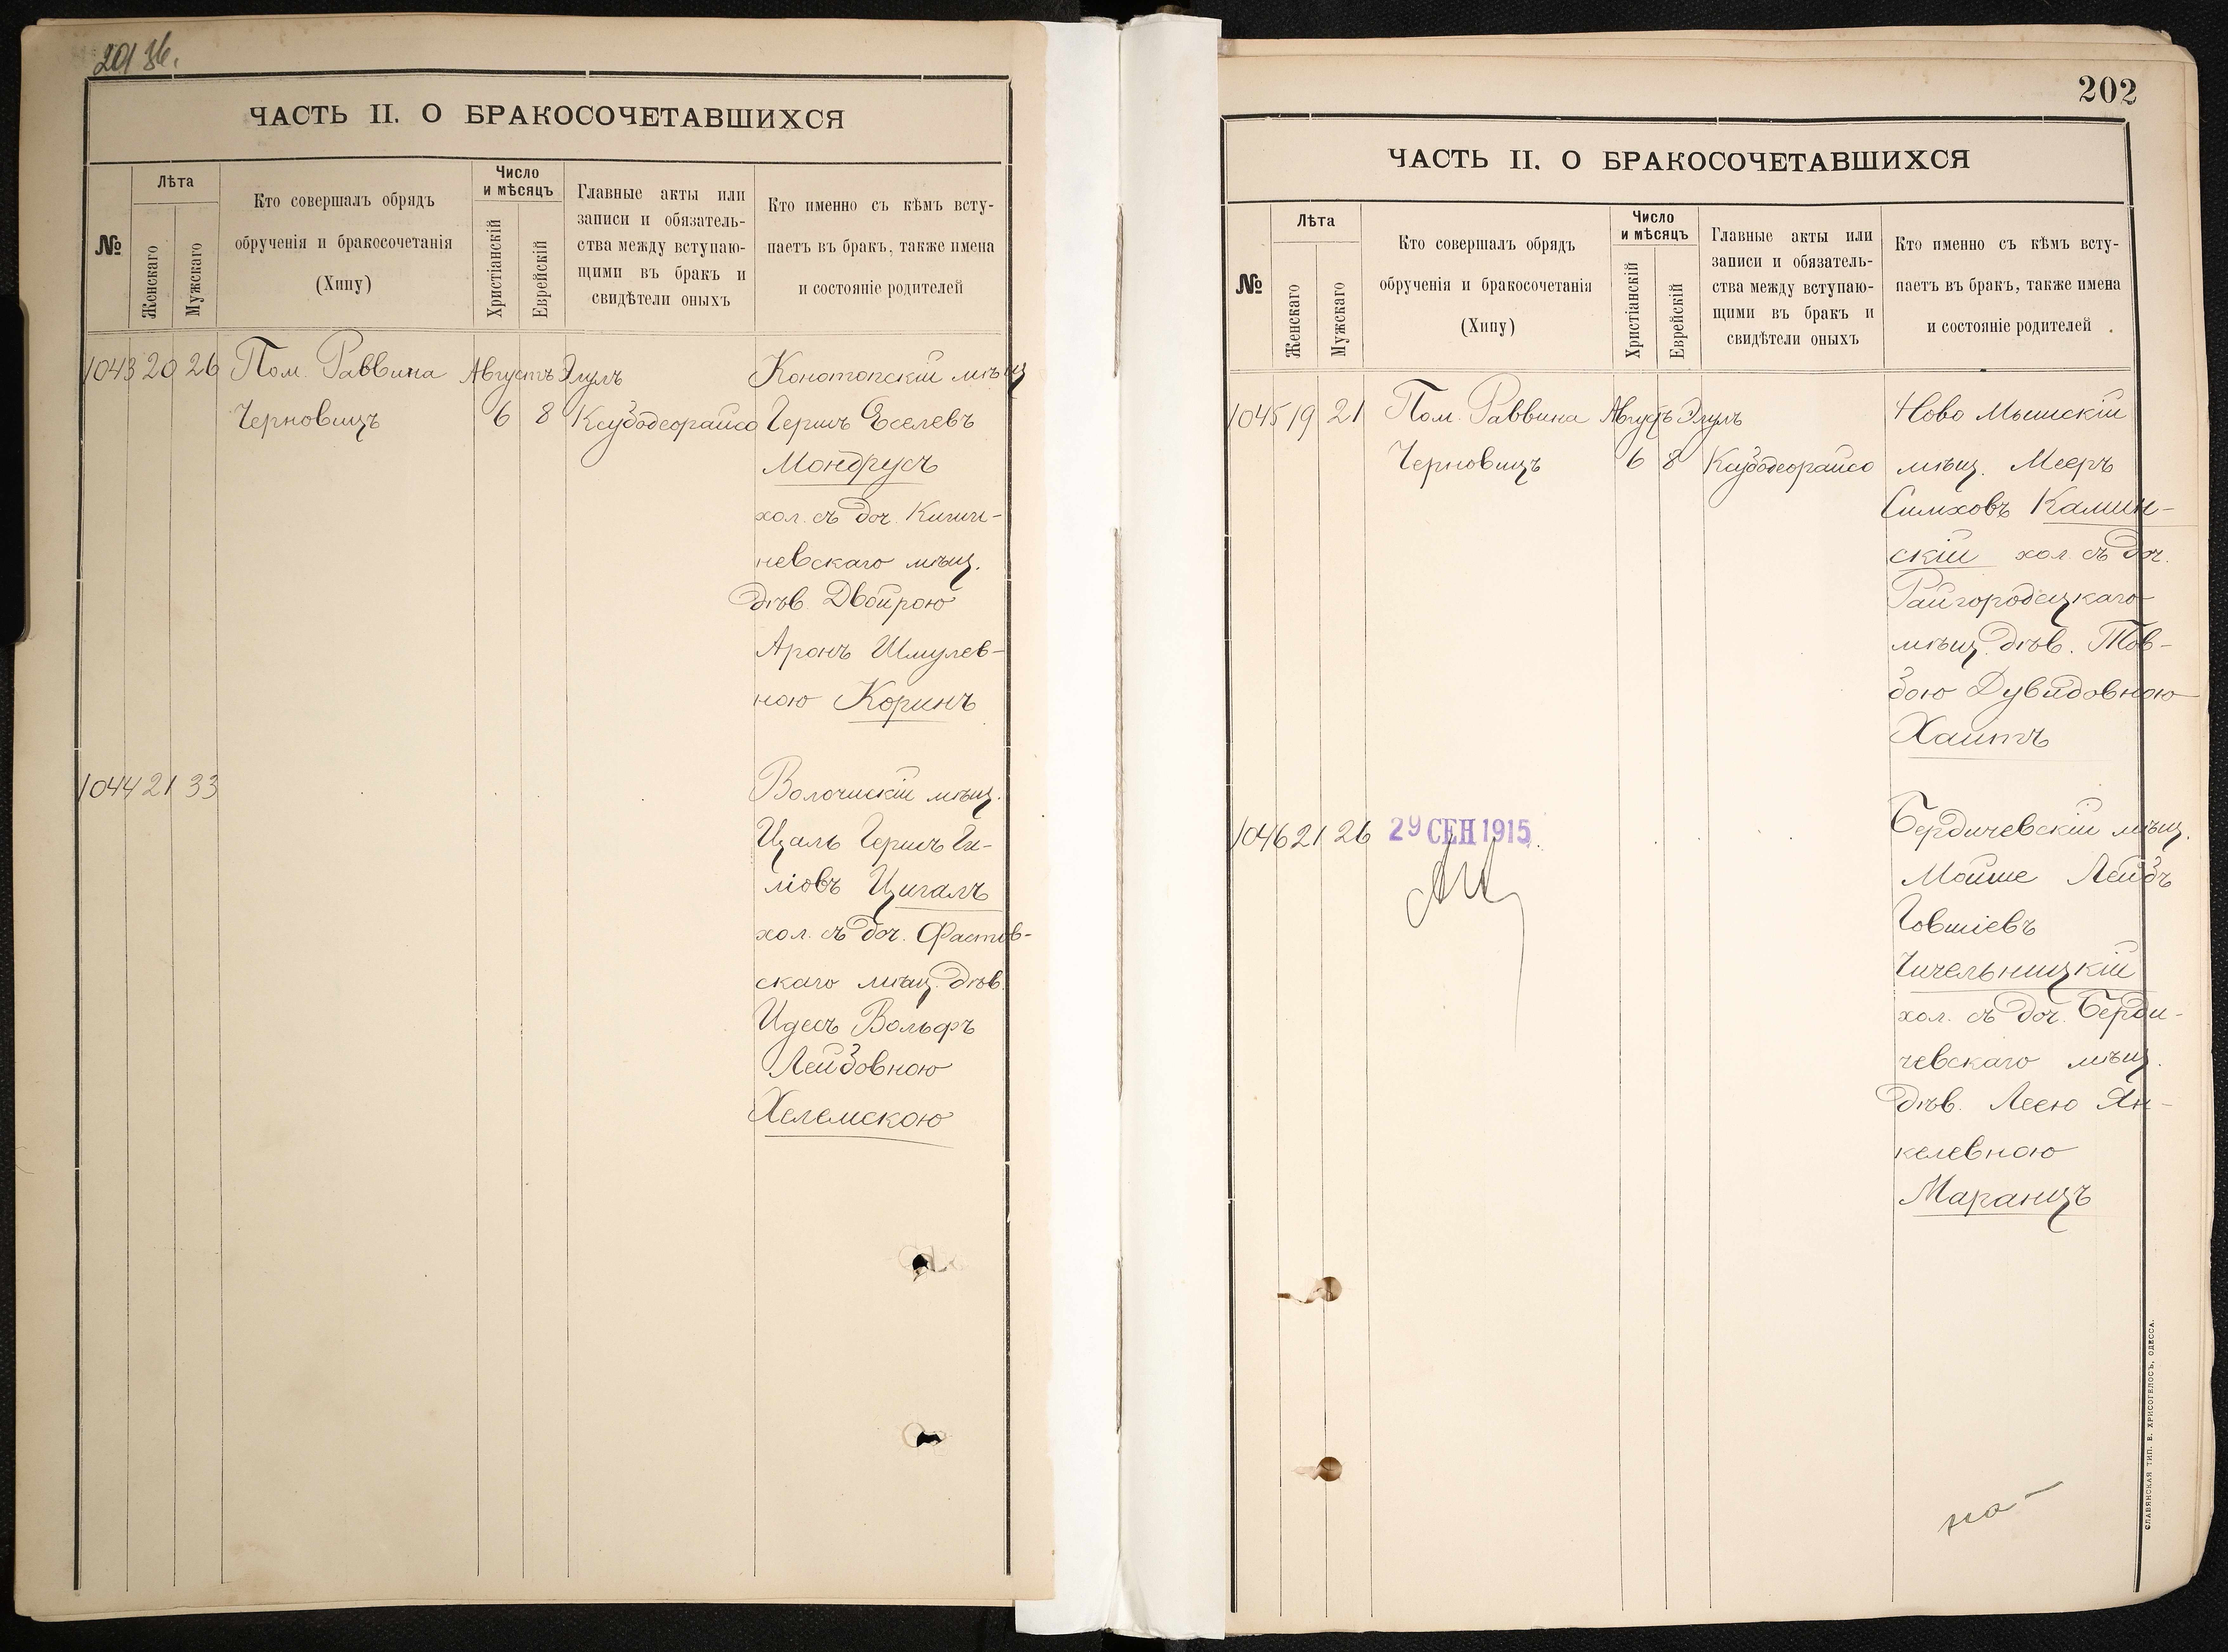 201 об.
ЧАСТЬ II. О БРАКОСОЧЕТАВШИХСЯ
№
Лѣта
Женскаго
Мужскаго
Кто совершалъ обрядъ
обрученія и бракосочетанія
(Хипу)
Число
и мѣсяцъ
Христіанскій
Еврейскій
Главные акты или
записи и обязатель-
ства между вступаю-
щими въ бракъ и
свидѣтели оныхъ
Кто именно съ кѣмъ всту-
паетъ въ бракъ, также имена
и состояніе родителей
1043 20 26 Пом. Раввина Августъ Элулъ Конотопскій мѣщ
Черновицъ 6 8 Ксубодеорайсо Гершъ Еселевъ
Мондрусъ
хол. съ доч. Кишин-
невскаго мѣщ.
дѣв. Двойрою
Аронъ Шмулев-
ною Коринъ
1044 21 33 Волочискій мѣщ.
Цаль Гершъ Ги-
ліовъ Цигалъ
хол. съ доч. Фастов-
скаго мѣщ. дѣв.
Идесъ Вольфъ
Лейзовною
Хелемскою
202
ЧАСТЬ II. О БРАКОСОЧЕТАВШИХСЯ
№
Лѣта
Женскаго
Мужскаго
Кто совершалъ обрядъ
обрученія и бракосочетанія
(Хипу)
Число
и мѣсяцъ
Христіанскій
Еврейскій
Главные акты или
записи и обязатель-
ства между вступаю-
щими въ бракъ и
свидѣтели оныхъ
Кто именно съ кѣмъ всту-
паетъ въ бракъ, также имена
и состояніе родителей
1045 19 21 Пом. Раввина Августъ Элулъ Ново Мышскій
Черновицъ 6 8 Ксубодеорайсо мѣщ. Мееръ
Симховъ Камин-
скій хол. съ доч.
Райгородецкаго
мѣщ. дѣв. Тов-
бою Дувидовною
Хаитъ
1046 21 26 29 СЕН 1915 Бердичевскій мѣщ.
Мойше Лейбъ
Говшіевъ
Чичельницкій
хол. съ доч. Берди-
чевскаго мѣщ.
дѣв. Леею Ян-
келевною
Маранцъ
на-
СЛАВЯНСКАЯ ТИП. Е. ХРИСОГЕЛОСЪ, ОДЕССА.